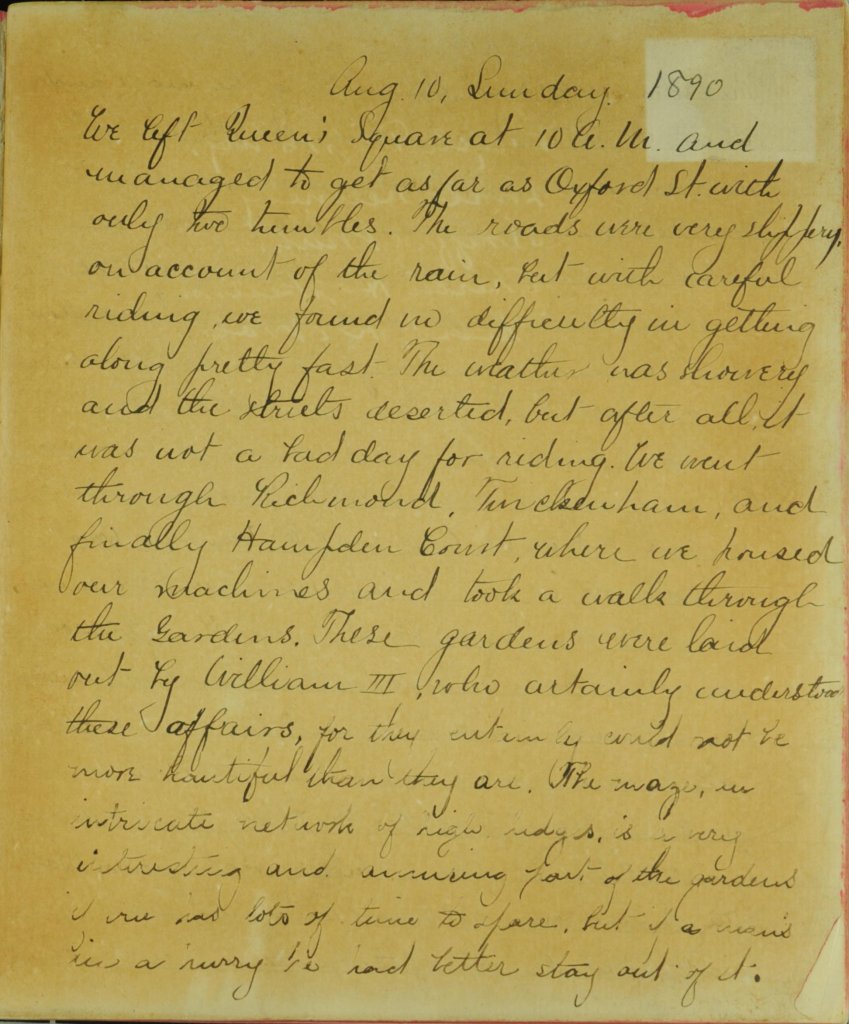 Aug. 10, Sunday. 1890
We left Queen's Square at 10 A.M. and
managed to get as far as Oxford St. with
only two tumbles. The roads were very slippery,
on account of the rain, but with careful
riding, we found no difficulty in getting
along pretty fast. The weather was showery
and the streets deserted, but after all, it
was not a bad day for riding. We went
through Richmond, Twickenham, and
finally Hampden Court, where we housed
our machines and took a walk through
the Gardens. These gardens were laid
out by William III, who certainly understood
these affairs, for they certainly could not be
more beautiful than they are. The maze, an
intricate network of high hedges, is a very
interesting and amusing part of the gardens
if one has lots of time to spare, but if a man's
in a hurry he had better stay out of it.